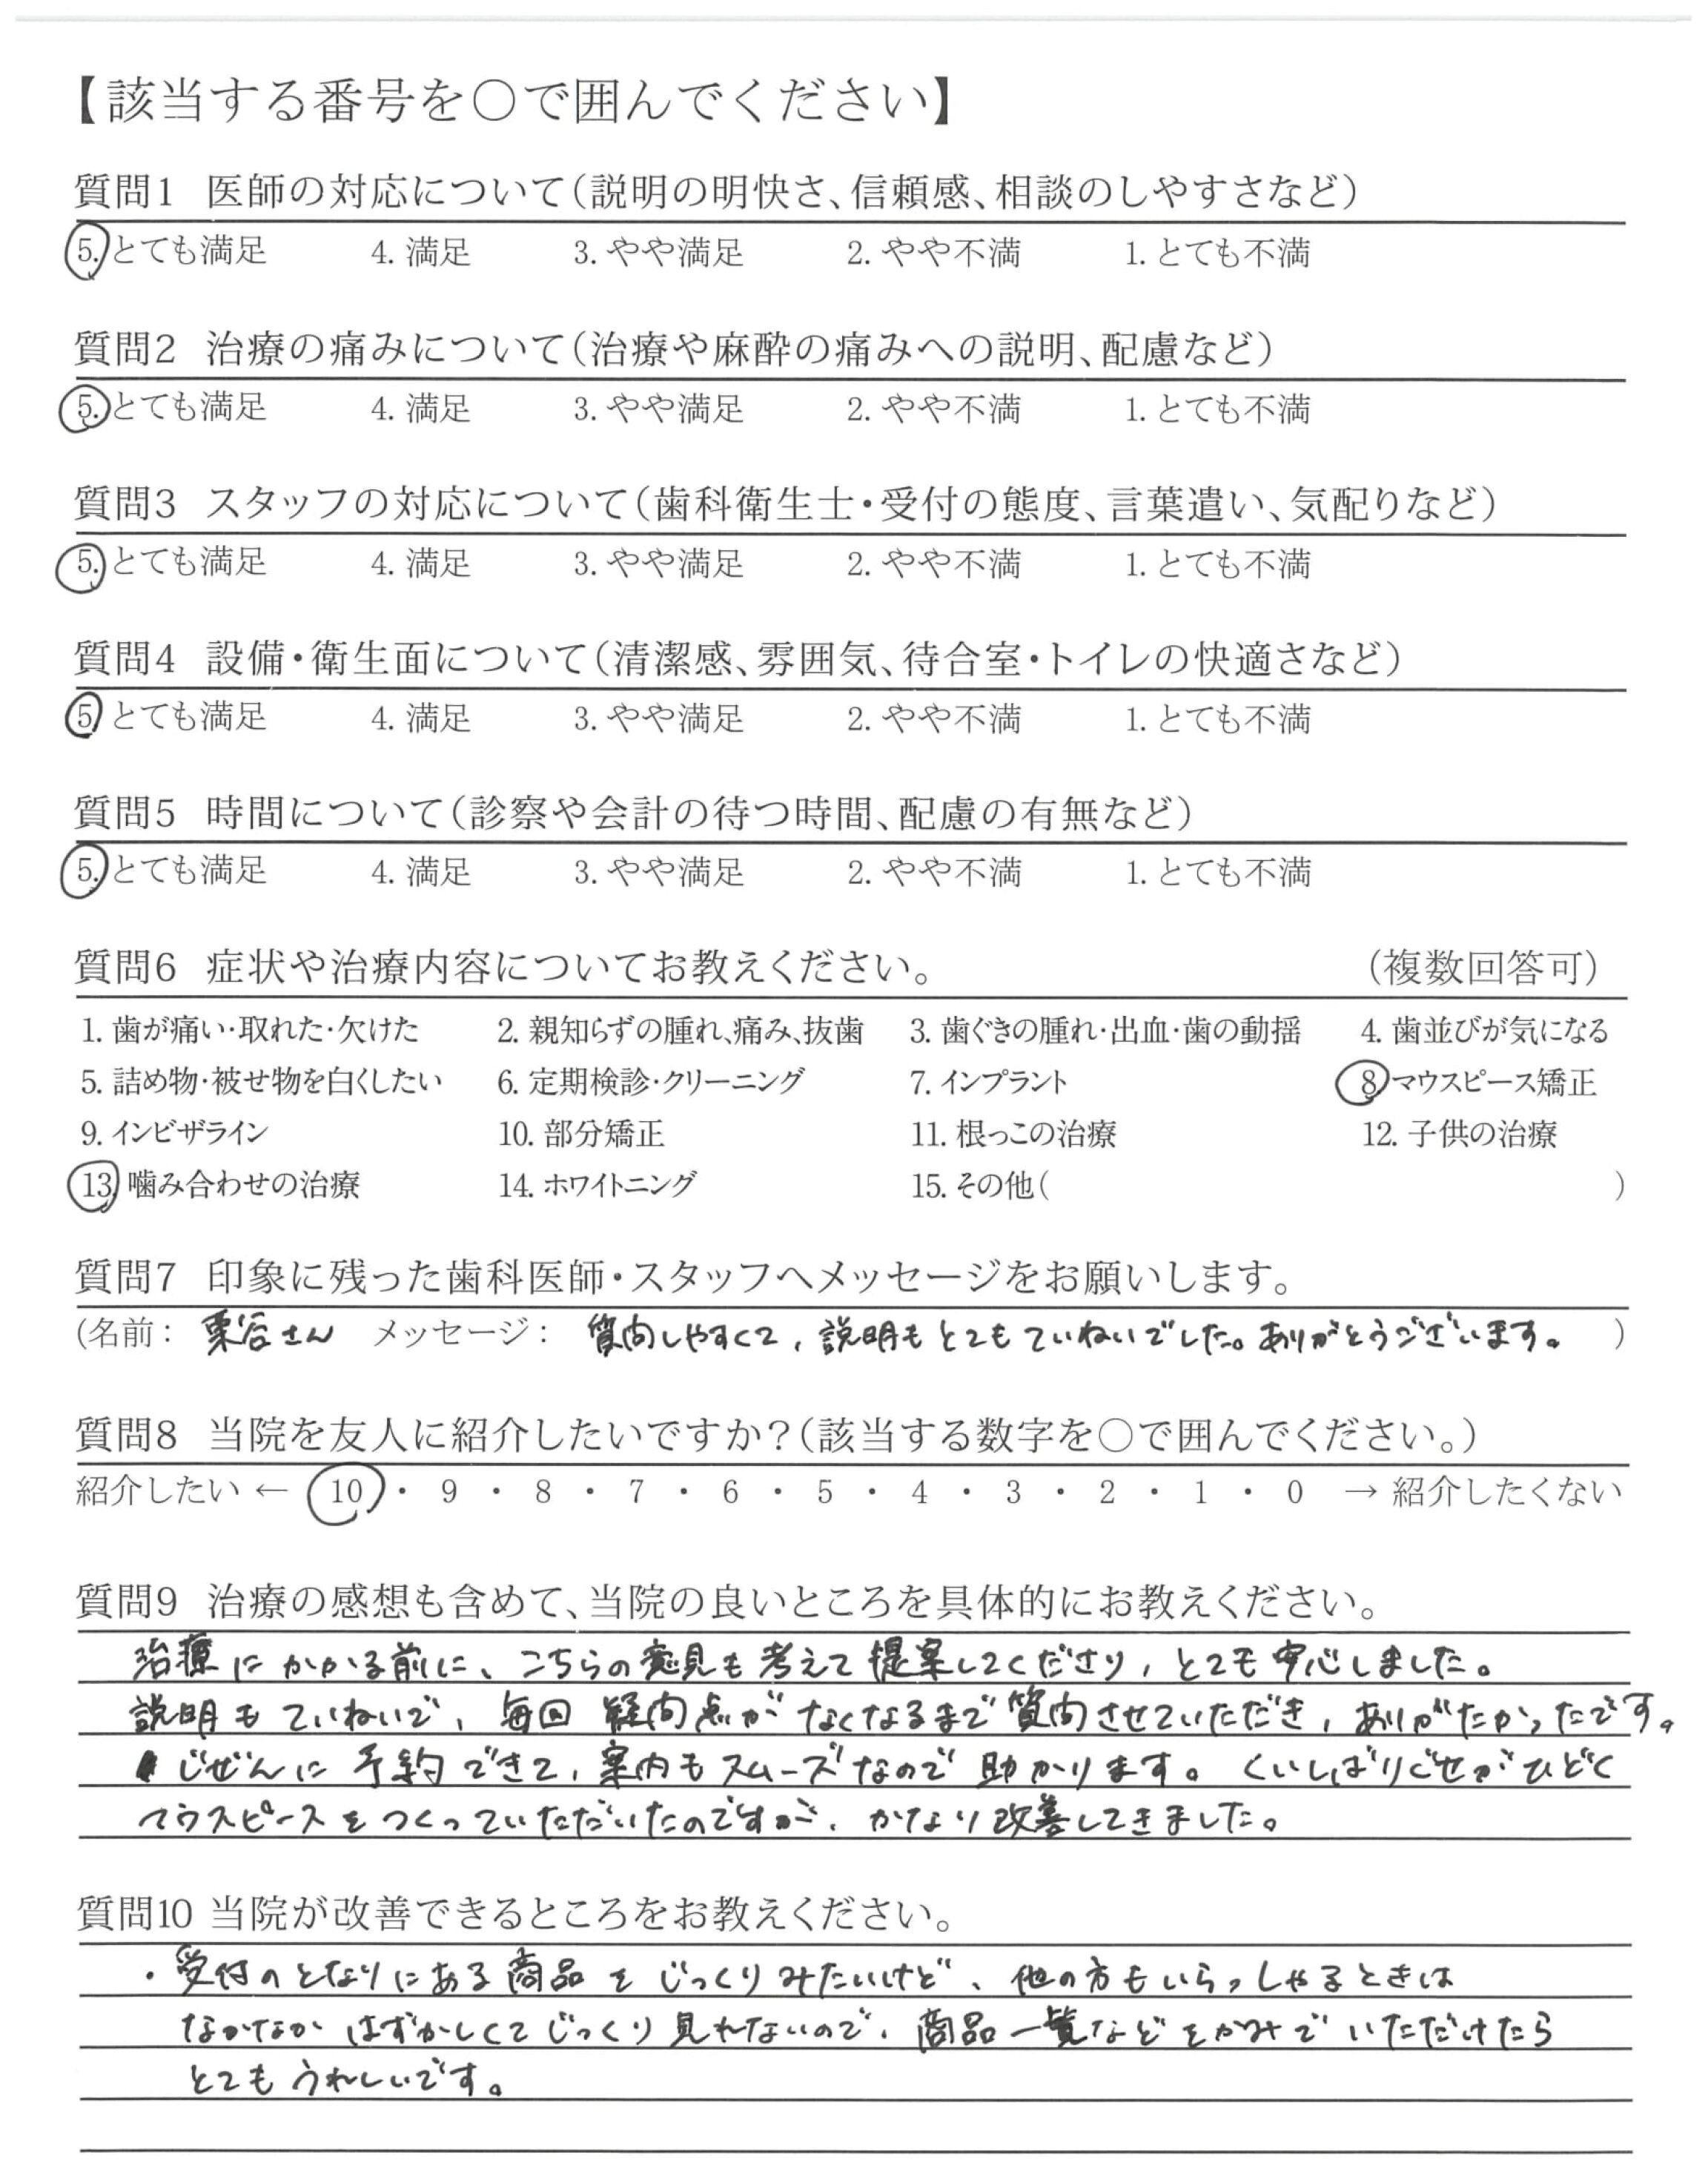 【該当する番号を○で囲んでください】
質問1 医師の対応について（説明の明快さ、信頼感、相談のしやすさなど）
5. とても満足 4. 満足 3. やや満足 2. やや不満 1. とても不満
質問2 治療の痛みについて（治療や麻酔の痛みへの説明、配慮など）
5. とても満足 4. 満足 3. やや満足 2. やや不満 1. とても不満
質問3 スタッフの対応について（歯科衛生士・受付の態度、言葉遣い、気配りなど）
5. とても満足 4. 満足 3. やや満足 2. やや不満 1. とても不満
質問4 設備・衛生面について（清潔感、雰囲気、待合室・トイレの快適さなど）
5 とても満足 4. 満足 3. やや満足 2. やや不満 1. とても不満
質問5 時間について（診察や会計の待つ時間、配慮の有無など）
5. とても満足 4. 満足 3. やや満足 2. やや不満 1. とても不満
質問6 症状や治療内容についてお教えください。 （複数回答可）
1. 歯が痛い・取れた・欠けた 2. 親知らずの腫れ、痛み、抜歯 3. 歯ぐきの腫れ・出血・歯の動揺 4. 歯並びが気になる
5. 詰め物・被せ物を白くしたい 6. 定期検診・クリーニング 7. インプラント 8. マウスピース矯正
9. インビザライン 10. 部分矯正 11. 根っこの治療 12. 子供の治療
13. 噛み合わせの治療 14. ホワイトニング 15. その他（ ）
質問7 印象に残った歯科医師・スタッフへメッセージをお願いします。
（名前： 栗谷さん メッセージ： 質問しやすくて、説明もとてもていねいでした。ありがとうございます。 ）
質問8 当院を友人に紹介したいですか？（該当する数字を○で囲んでください。）
紹介したい ← 10 ・ 9 ・ 8 ・ 7 ・ 6 ・ 5 ・ 4 ・ 3 ・ 2 ・ 1 ・ 0 → 紹介したくない
質問9 治療の感想も含めて、当院の良いところを具体的にお教えください。
治療にかかる前に、こちらの意見も考えて提案してくださり、とても安心しました。
説明もていねいで、毎回 疑問点がなくなるまで質問させていただき、ありがたかったです。
じぜんに予約できて、案内もスムーズなので助かります。くいしばりぐせがひどく
マウスピースをつくっていただいたのですが、かなり改善してきました。
質問10 当院が改善できるところをお教えください。
・受付のとなりにある商品をじっくりみたいけど、他の方もいらっしゃるときは
なかなかはずかしくてじっくり見れないので、商品一覧などをかみでいただけたら
とてもうれしいです。